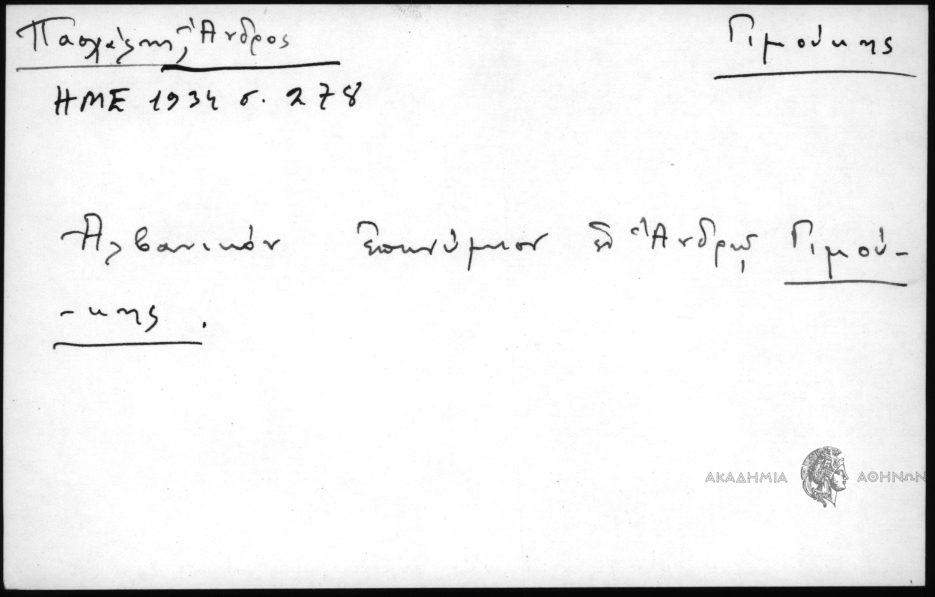 Πασχάλης, Ἄνδρος
Γιμούκης
ΗΜΕ 1934 σ. 278
Ἀλβανικὸν ἐπωνύμιον ἐν Ἄνδρῳ Γιμού-
-κης.
ΑΚΑΔΗΜΙΑ ΑΘΗΝΩΝ